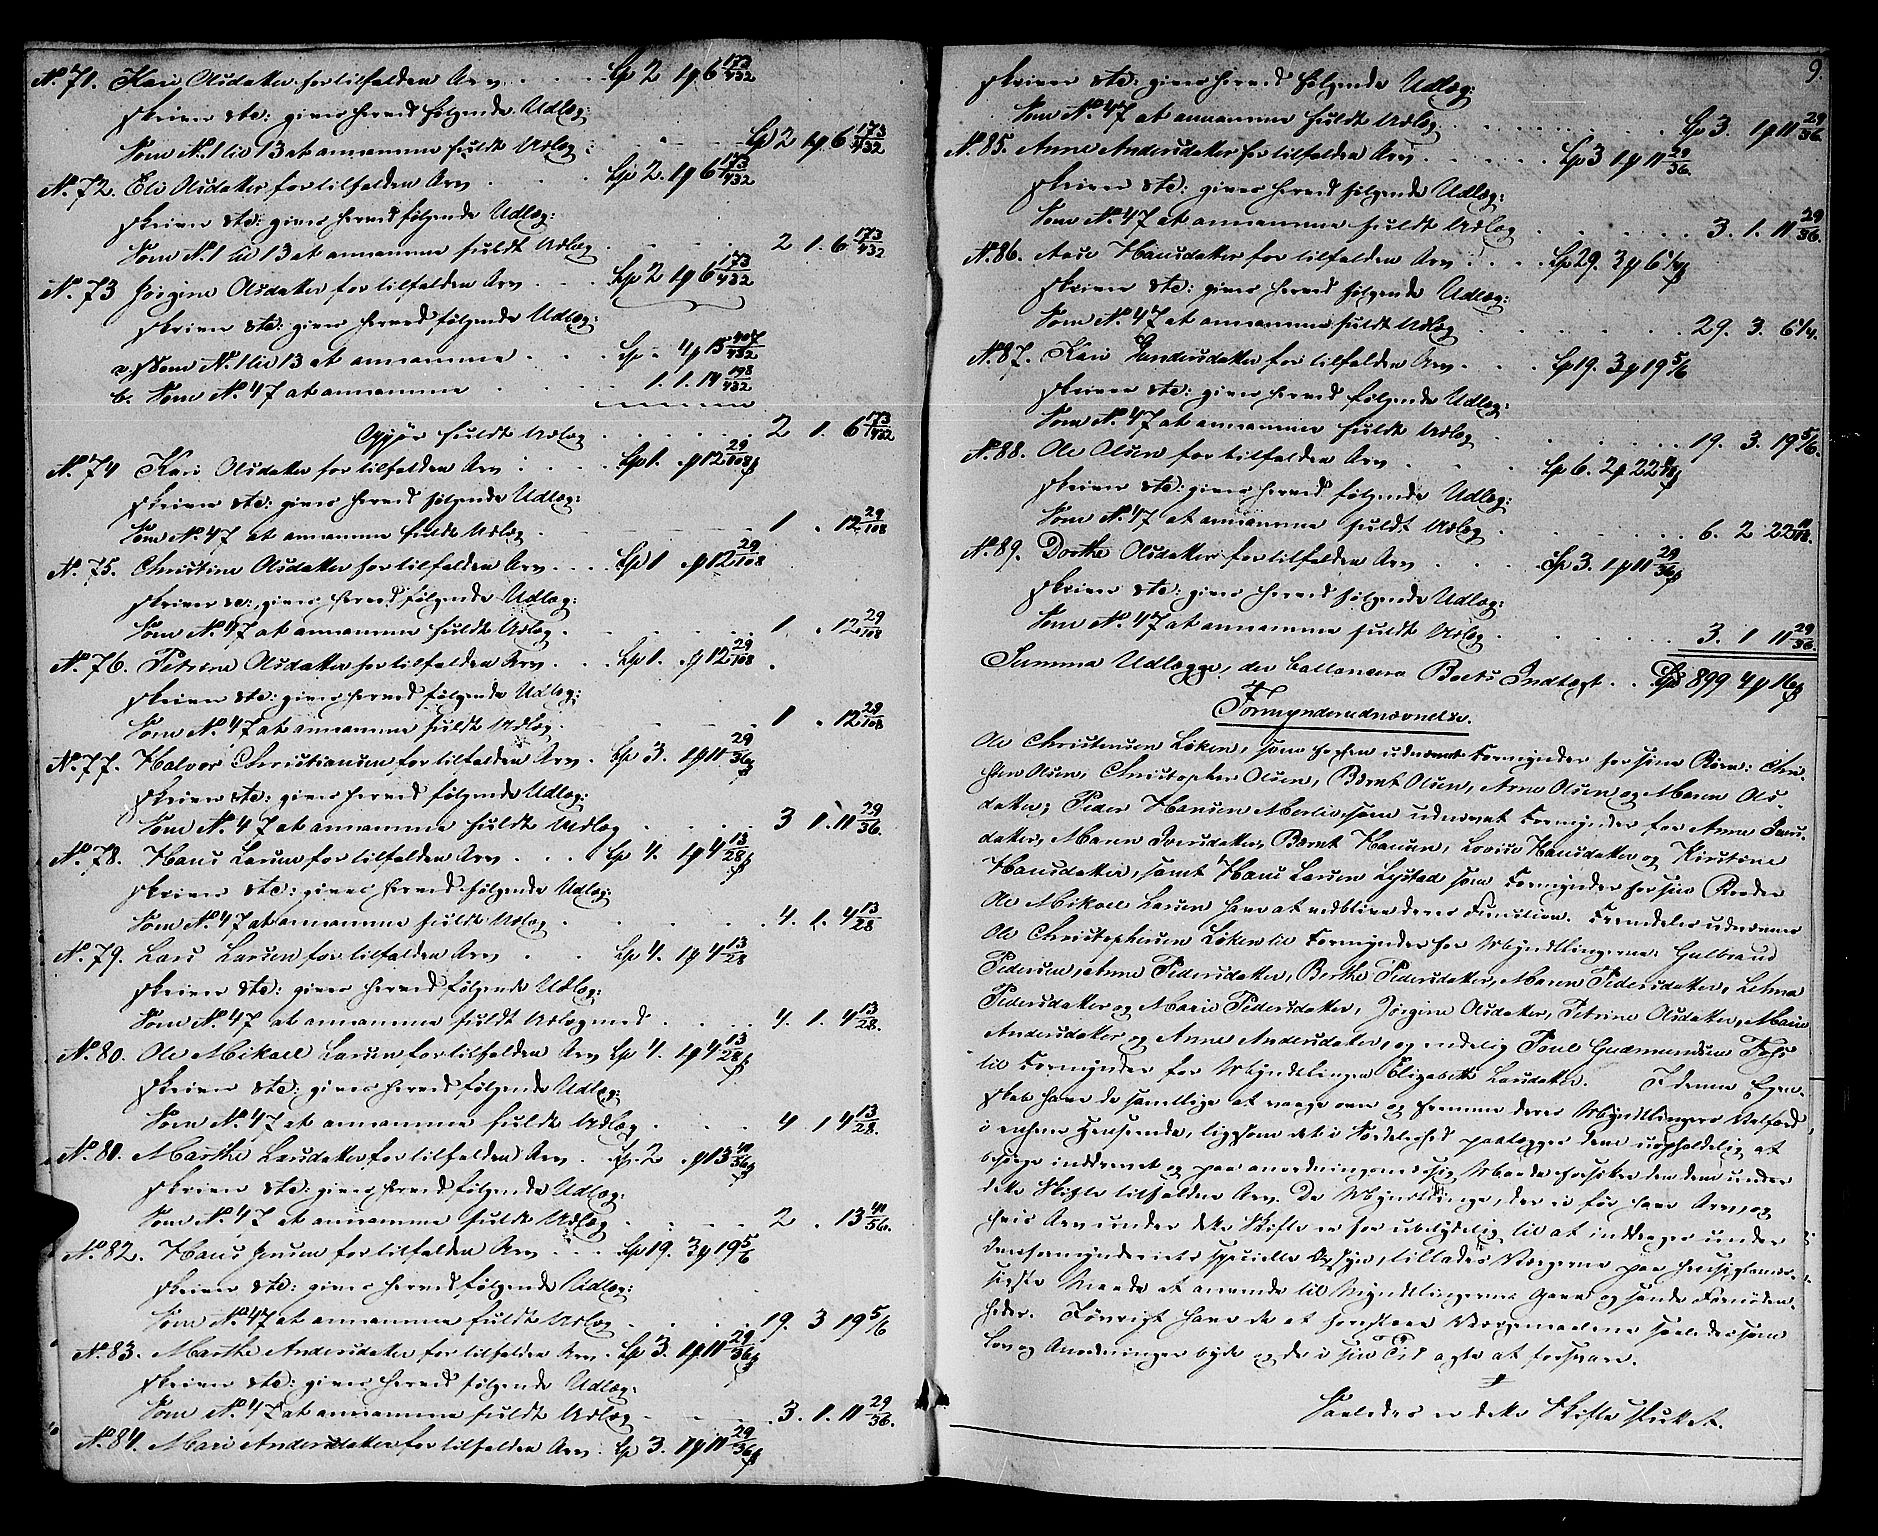 No. 71. Kari Olsdatter for tilfalden Arv . . . . Sp 2 1 ꝼ 6 173/432
skriver etc: gives herved følgende Udlæg:
Som No. 1 til 13 at annamme fuldt Udlæg: . . . Sp 2 1 ꝼ 6 173/432
No. 72. Eli Olsdatter for tilfalden Arv . . . . Sp 2. 1 ꝼ 6 173/432
skriver etc: gives herved følgende Udlæg:
Som No. 1 til 13 at annamme fuldt Udlæg . . . 2 1. 6 173/432
No. 73 Jørgine Olsdatter for tilfalden Arv . . . . Sp 2 1 ꝼ 6 173/432
skriver etc: gives herved følgende Udlæg:
a, Som No. 1 til 13 at annamme . . . . Sp " 4 ꝼ 15 407/432
b. Som No. 47 at annamme . . . . 1. 1. 14 198/432
Opgjør fuldt Udlæg . . . . 2 1. 6 173/432
No. 74 Kari Olsdatter for tilfalden Arv . . . . Sp 1. " ꝼ 12 29/108 ß
skriver etc: gives herved følgende Udlæg:
Som No. 47 at annamme fuldt Udlæg . . . 1 " 12 29/108
No. 75. Christine Olsdatter for tilfalden Arv . . . . Sp 1 " ꝼ 12 29/108
skriver etc: gives herved følgende Udlæg:
Som No. 47 at annamme fuldt Udlæg . . . 1 " 12 29/108
No. 76. Petrine Olsdatter for tilfalden Arv . . . . Sp 1. " ꝼ 12 29/108
skriver etc: gives herved følgende Udlæg:
Som No. 47 at annamme fuldt Udlæg . . . 1 " 12 29/108
No. 77. Halvor Christiansen for tilfalden Arv . Sp 3. 1 ꝼ 11 29/36 ß
skriver etc: gives herved følgende Udlæg:
Som No. 47 at annamme fuldt Udlæg . . . 3 1. 11 29/36.
No. 78. Hans Larsen for tilfalden Arv . . . Sp 4. 1 ꝼ 4 13/28 ß
skriver etc: gives herved følgende Udlæg:
Som No. 47 at annamme fuldt Udlæg . . . 4. 1. 4 13/28
No. 79. Lars Larsen for tilfalden Arv . . Sp 4. 1 ꝼ 4 13/28
skriver etc: gives herved følgende Udlæg:
Som No. 47 at annamme fuldt Udlæg med . . . 4. 1. 4 13/28.
No. 80. Ole Mikael Larsen for tilfalden Arv Sp 4. 1 ꝼ 4 13/28 ß
skriver etc: gives herved følgende Udlæg:
Som No. 47 at annamme fuldt Udlæg . . . 4 1 4 13/28.
No. 81. Marthe Larsdatter for tilfalden Arv . Sp. 2 " ꝼ 13 41/56 ß
skriver etc: gives herved følgende Udlæg:
Som No. 47 at annamme fuldt Udlæg . . . 2 " 13 41/56.
No. 82. Hans Jensen for tilfalden Arv . . . Sp 19. 3 ꝼ 19 5/6
skriver etc: gives herved følgende Udlæg:
Som No. 47 at annamme fuldt Udlæg . . . 19. 3 19 5/6
No. 83. Marthe Andersdatter for tilfalden Arv . Sp 3. 1 ꝼ 11 29/36 ß
skriver etc: gives herved følgende Udlæg:
Som No. 47 at annamme fuldt Udlæg . . . 3. 1. 11 29/36.
No. 84. Mari Andersdatter for tilfalden Arv . Sp 3. 1 ꝼ 11 29/36 ß
9.
skriver etc: gives herved følgende Udlæg:
Som No. 47 at annamme fuldt Udlæg . . . Sp 3. 1 ꝼ 11 29/36.
No. 85. Anne Andersdatter for tilfalden Arv . . . Sp 3 1 ꝼ 11 29/36.
skriver etc: gives herved følgende Udlæg:
Som No. 47 at annamme fuldt Udlæg . . . 3. 1. 11 29/36.
No. 86. Aase Hansdatter for tilfalden Arv . . . Sp 29. 3 ꝼ 6 1/4 ß
skriver etc: gives herved følgende Udlæg:
Som No. 47 at annamme fuldt Udlæg . . . 29. 3. 6 1/4.
No. 87. Kari Gundersdatter for tilfalden Arv . . . Sp 19. 3 ꝼ 19 5/6
skriver etc: gives herved følgende Udlæg:
Som No. 47 at annamme fuldt Udlæg . . . 19. 3. 19 5/6.
No. 88. Ole Olsen for tilfalden Arv . . . Sp 6. 2 ꝼ 22 ß
skriver etc: gives herved følgende Udlæg:
Som No. 47 at annamme fuldt Udlæg . . . 6. 2 22
No. 89. Dorthe Olsdatter for tilfalden Arv . . . Sp 3. 1 ꝼ 11 29/36 ß
skriver etc: gives herved følgende Udlæg:
Som No. 47 at annamme fuldt Udlæg . . . 3. 1 11 29/36.
Summa Udlægge, der ballancera Boets Indtægt . . Sp 899 4 ꝼ 16 ß
Formynderudnævnelse.
Ole Christensen Løken, som forhen udnævnt Formynder for sine Børn: Chri-
sten Olsen, Christopher Olsen, Bernt Olsen, Arne Olsen og Maren Ols-
datter; Peder Hansen Merlie som udnævnt Formynder for Anne Ivers-
datter, Maren Iversdatter, Bernt Hansen, Lovise Hansdatter og Kirstine
Hansdatter, samt Hans Larsen Lystad som Formynder for sin Broder
Ole Mikael Larsen have at vedblive deres Function. Fremdeles udnævnes
Ole Christophersen Løken til Formynder for Myndlingerne: Gulbrand
Pedersen, Anne Pedersdatter, Berthe Pedersdatter, Maren Pedersdatter, Helena
Pedersdatter og Marie Pedersdatter, Jørgine Olsdatter, Petrine Olsdatter, Marie
Andersdatter og Anne Andersdatter, og endelig Poul Gudmundsen Fos
til Formynder for Myndlingen Elizabeth Larsdatter. I denne Egen-
skab have de samtlige at vaage over og fremme deres Myndlingers Velfærd
i enhver Henseende, ligesom det i Særdeleshed paalægges dem uopholdelig at
besørge inddrevet og paa anordningsmæssig Maade forsikre den dem under
dette Skifte tilfaldne Arv. De Myndlinge, der ei før have Arv, og
hvis Arv under dette Skifte er for ubetydelig til at inddrages under
Overformynderiets specielle Opsyn, tillades Værgerne paa hensigtsmæs-
sigste Maade at anvende til Myndlingernes Gavn og sande Fornøden-
heder. Iøvrigt have de at forestaae Værgemaalene saaledes som
Lov og Anordninger byde og de i sin Tid agte at forsvare.
Saaledes er dette Skifte sluttet.